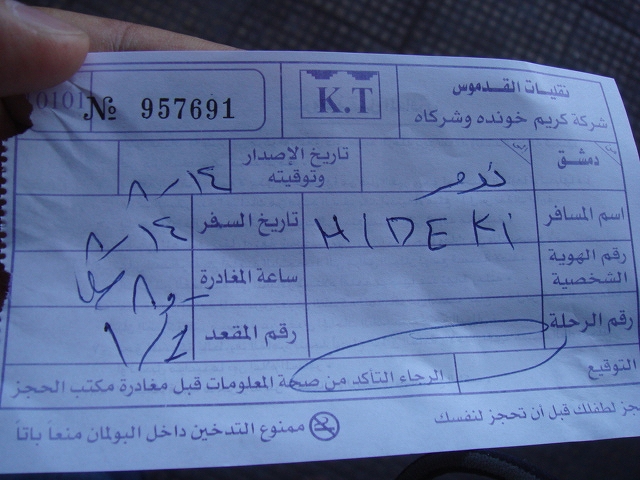 № 957691
K.T
تنقليات القدموس
شركة كريم خونده وشركاه
دمشق
تدمر
تاريخ الإصدار وتوقيته
٨-١٤
اسم المسافر
HIDEKi
تاريخ السفر
٨-١٤
رقم الهوية
الشخصية
ساعة المغادرة
رقم الرحلة
رقم المقعد
التوقيع
الرجاء التأكد من صحة المعلومات قبل مغادرة مكتب الحجز
لطفلك قبل أن تحجز لنفسك
ممنوع التدخين داخل البولمان منعاً باتاً